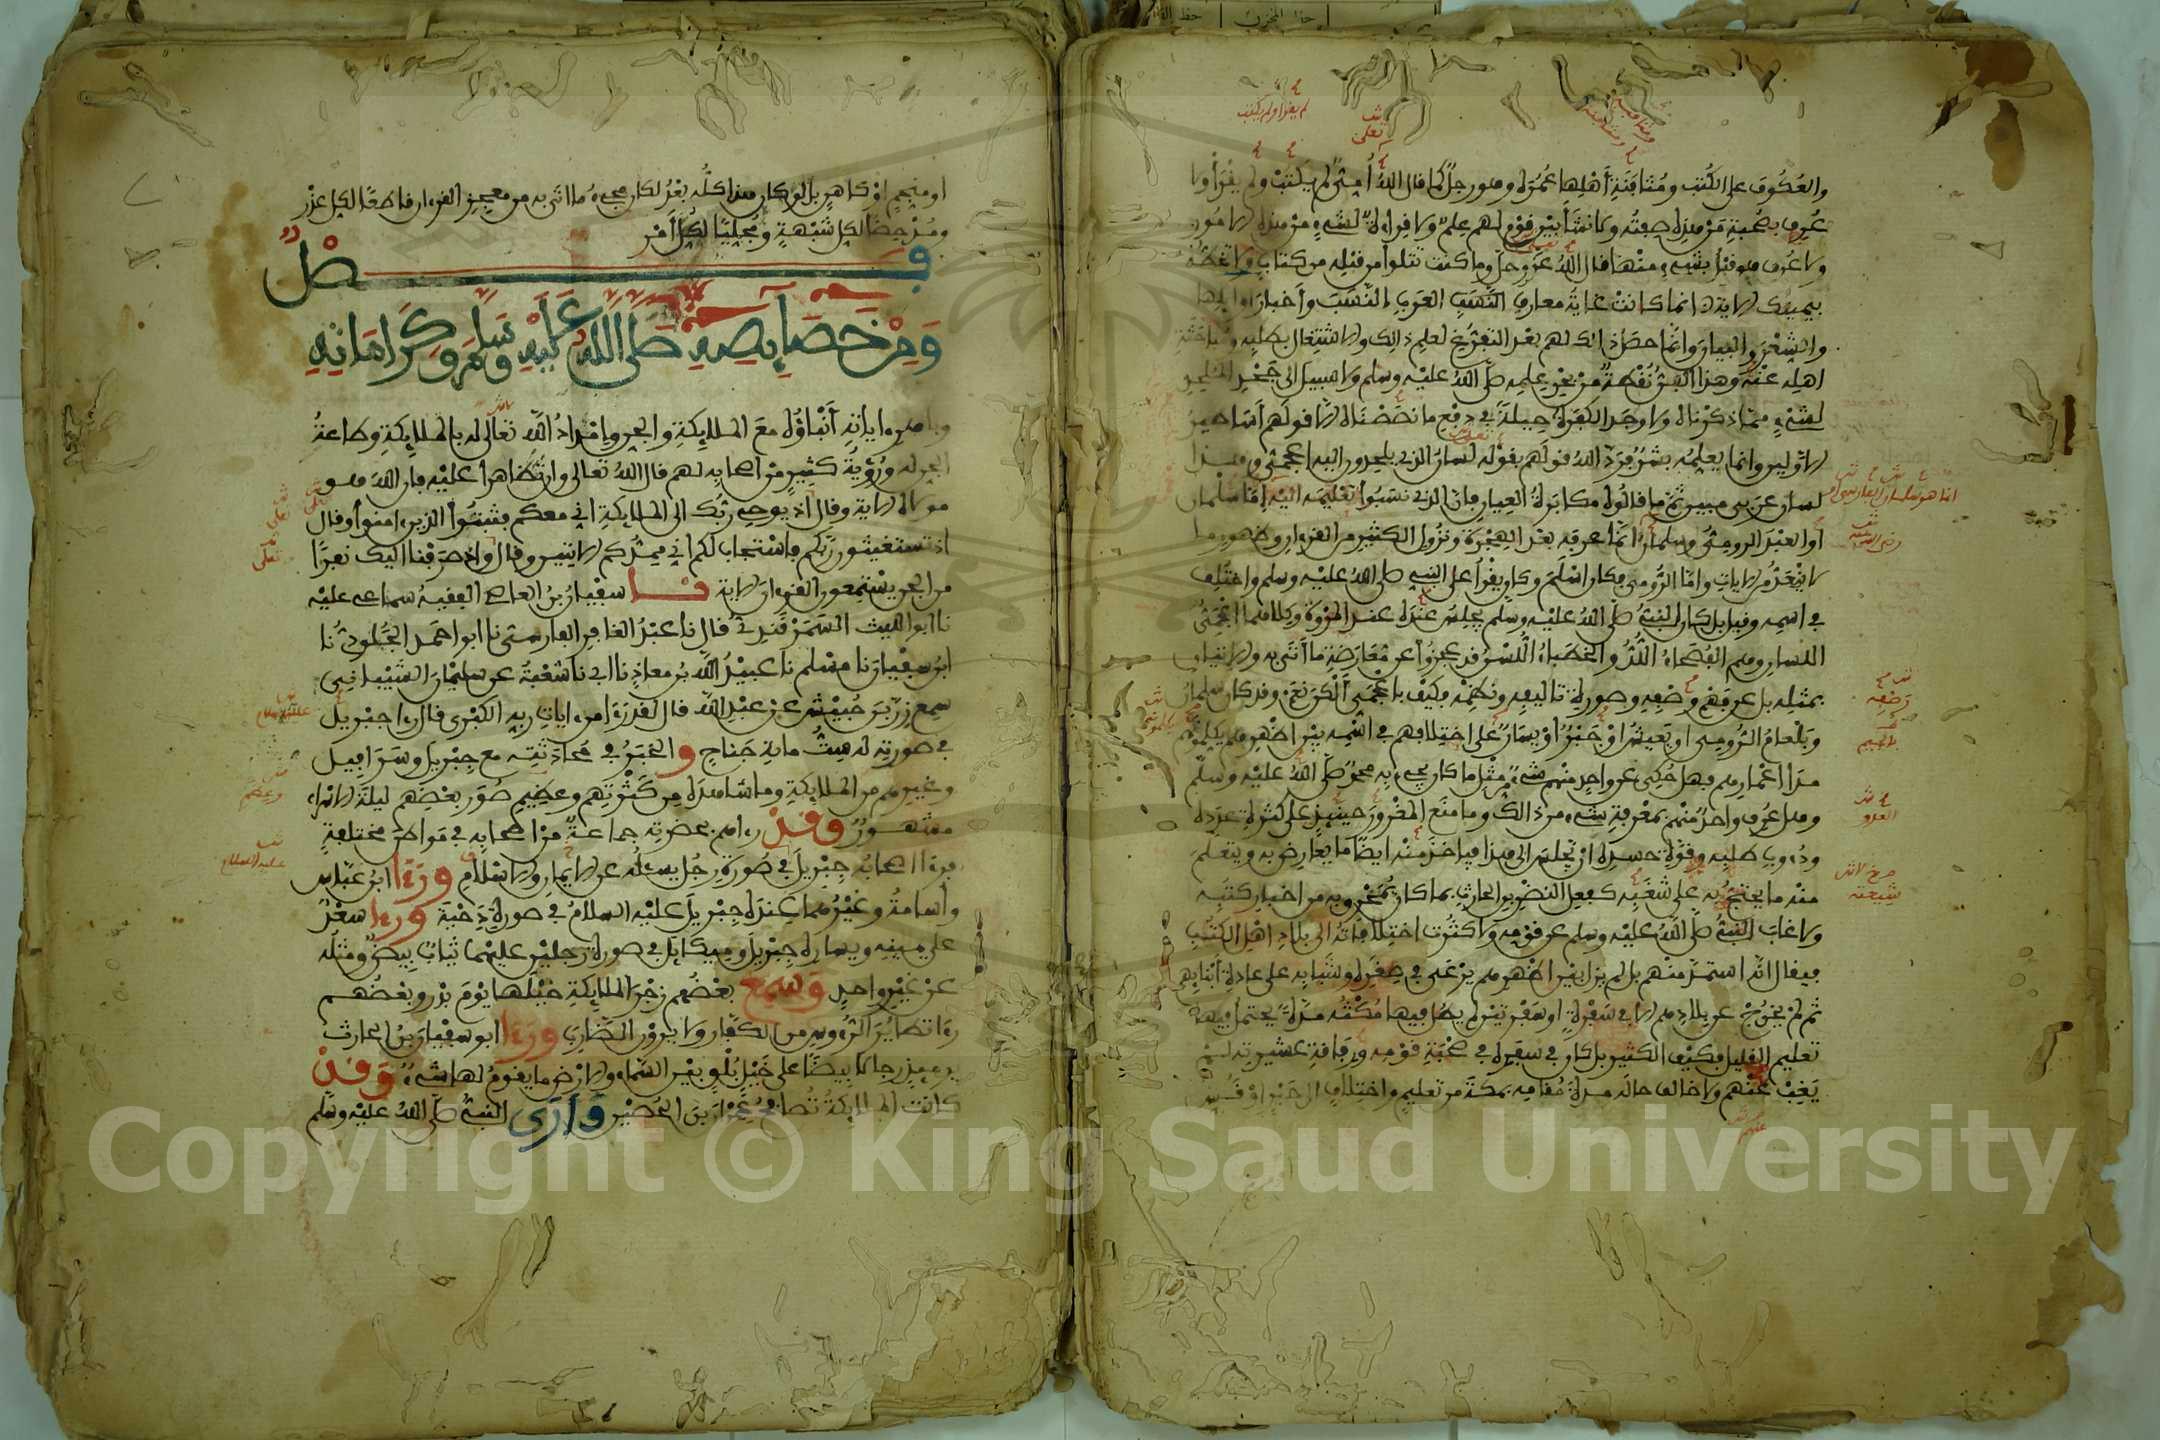 والعكوف على الكتب ومثافنة أهلها عمره وهو رجل كما قال الله أمي لم يكتب ولم يقرأ ولا
عرف بصحبة من هذه صفته ولا نشأ بين قوم لهم علم ولا قراءة لشيء من هذه الامور
ولا عرف هو قبل بشيء منها قال الله عز وجل وما كنت تتلوا من قبله من كتاب ولا تخطه
بيمينك الاية انما كانت غاية معارف العرب النسب وأخبار اوايلها
والشعر والبيان وانما حصل ذالك لهم بعد التفرغ لعلم ذالك والاشتغال بطلبه ومباحثة
اهله عنه وهذا الفن نقطة من بحر علمه صلى الله عليه وسلم ولا سبيل الى جحد الملحد
لشيء مما ذكرناه ولا وجد الكفرة حيلة في دفع ما نصصناه الا قولهم أساطير
الاولين وانما يعلمه بشر فرد الله قولهم بقوله لسان الذي يلحدون اليه اعجمي وهذا
لسان عربي مبين ثم ما قالوه مكابرة العيان فان الذي نسبوا تعليمه اليه إما سلمان
أو العبد الرومي وسلمان انما عرفه بعد الهجرة ونزول الكثير من القرءان وظهور ما
لا ينعد من الايات واما الرومي فكان اسلم وكان يقرأ على النبي صلى الله عليه وسلم واختلف
في اسمه وقيل بل كان النبي صلى الله عليه وسلم يجلس عنده عند المروة وكلاهما اعجمي
اللسان وهم الفصحاء اللد والخطباء اللسن قد عجزوا عن معارضة ما أتى به والاتيان
بمثله بل عن فهم وصفه وصورة تاليفه ونظمه فكيف باعجمي ألكن نعم وقد كان سلمان
وبلعام الرومي او يعيش او جبر أو يسار على اختلافهم في اسمه بين اظهرهم يكلمونهم
مدا اعمارهم فهل حكي عن واحد منهم شيء من مثل ما كان يجيء به محمد صلى الله عليه وسلم
وهل عرف واحد منهم بمعرفة شيء من ذالك وما منع العدو حينئذ على كثرة عدده
ودءوب طلبه وقوة حسده ان يجلس الى هذا فياخذ منه ايضا ما يعارض به ويتعلم
منه ما يحتج به على شغبه كفعل النضر بن الحارث بما كان يمخرق به من اخبار كتبه
ولا غاب النبي صلى الله عليه وسلم عن قومه ولا كثرت اختلافاته الى بلاد اهل الكتب
فيقال انه استمد منهم بل لم يزل بين اظهرهم يرعى في صغره وشبابه على عادة أنبايهم
ثم لم يخرج عن بلادهم الا في سفرة او سفرتين لم يطل فيها مكثه مدة يحتمل فيها
تعليم القليل فكيف الكثير بل كان في سفره في صحبة قومه ورفاقة عشيرته لم
يغب عنهم ولا خالف حاله مدة مقامه بمكة من تعليم واختلاف الى حبر او قس
او منجم او كاهن بل لو كان هذا كله بعد لكان مجيء ما اتى به من معجز القرءان قاطعا لكل عذر
ومدحضا لكل شبهة ومجليا لكل أمر
فصل
ومن خصايصه صلى الله عليه وسلم وكراماته
وباهر ءاياته أنباؤه مع الملايكة والجن وإمداد الله تعالى له بالملايكة وطاعة
الجن له ورؤية كثير من اصحابه لهم قال الله تعالى وان تظاهرا عليه فان الله هو
مولاه الاية وقال اذ يوحي ربك الى الملايكة اني معكم فثبتوا الذين ءامنوا وقال
اذ تستغيثون ربكم فاستجاب لكم اني ممدكم الايتين وقال واذ صرفنا اليك نفرا
من الجن يستمعون القرءان الاية نا سفيان بن العاصي الفقيه سماعي عليه
نا ابو الليث السمرقندي قال نا عبد الغافر الفارسي نا ابو احمد الجلودي نا
ابن سفيان نا مسلم نا عبيد الله بن معاذ نا ابي نا شعبة عن سليمان الشيباني
سمع زر بن حبيش عن عبد الله قال لقد رءا من ءايات ربه الكبرى قال رءا جبريل
في صورته له ست ماية جناح والخبر في محادثته مع جبريل وسرافيل
وغيرهم من الملايكة وما شاهده من كثرتهم وعظيم صور بعضهم ليلة الاسراء
مشهور وقد رءاهم بحضرته جماعة من اصحابه في مواطن مختلفة
فرءا اصحابه جبريل في صورة رجل يسئله عن الايمان والاسلام ورءا ابن عباس
وأسامة وغيرهما عنده جبريل عليه السلام في صورة دحية ورءا سعد
على يمينه ويساره جبريل وميكايل في صورة رجلين عليهما ثياب بيض ومثله
عن غير واحد وسمع بعضهم زجر الملايكة خيلها يوم بدر وبعضهم
رءا تطاير الرءوس من الكفار ولا يرون الضارب ورءا ابو سفيان بن الحارث
يومئذ رجالا بيضا على خيل بلق بين السماء والارض ما يقوم لها شيء وقد
كانت الملايكة تصافح عمران بن الحصين وأرى النبي صلى الله عليه وسلم
Copyright © King Saud University